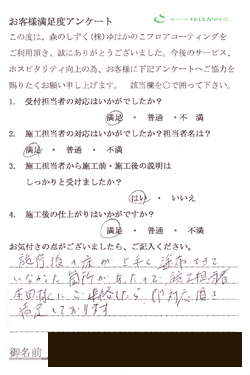 お客様満足度アンケート
この度は、森のしずく(株)ゆはかのこフロアコーティングを
ご利用頂き、誠にありがとうございました。今後のサービス、
ホスピタリティ向上の為、お客様に下記アンケートへご協力を
賜りたくお願い申し上げます。 該当欄を○で囲って下さい。
1. 受付担当者の対応はいかがでしたか?
満足 ・ 普通 ・不 満
2. 施工担当者の対応はいかがでしたか?担当者名は?
満足 ・ 普通 ・ 不満
3. 施工担当者から施工前・施工後の説明は
しっかりと受けましたか?
はい ・ いいえ
4. 施工後の仕上がりはいかがですか?
満足 ・ 普通 ・ 不満
お気付きの点がございましたら、ご記入ください。
施行後の床が上手く塗布できて
いなかった箇所があったので施工担当者
様にご連絡したら、即対応頂き
満足しております
御名前